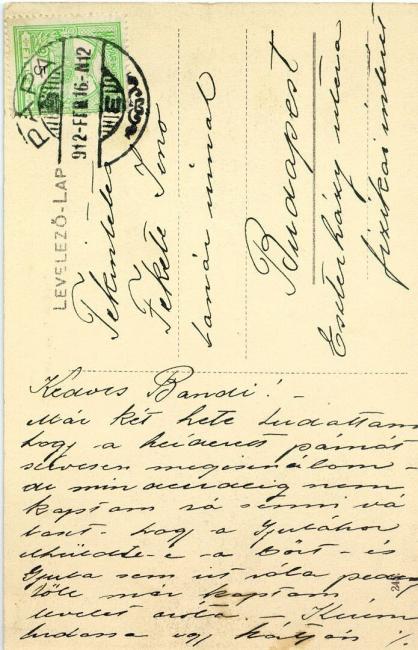 PÁPA
912 FEB 16 N12
LEVELEZŐ-LAP
Tekintetes
Fekete Jenő
tanár úrnak
Budapest
Eszterházy utca
fizikai intézet
Kedves Bandi! -
Már két hete tudattam
hogy a kiderett párnát
szívesen megcsinálom -
de mindezideig nem
kaptam rá semmi vá
laszt - hogy a
elküldte-e a bőrt - és
sem írt róla pedig
tőle már kaptam
levelet azóta. - Kérem
tudassa egy kártyán %.